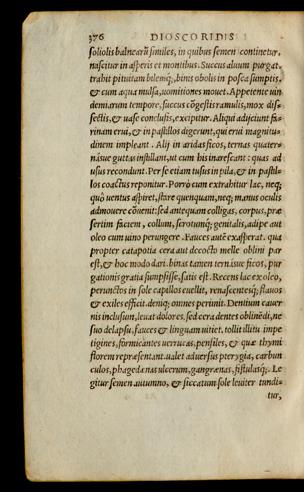 376 DIOSCORIDIS
foliolis balnearũ similes, in quibus semen continetur,
nascitur in asperis et montibus. Succus aluum purgat.
trahit pituitam bilemq;, binis obolis in posca sumptis,
& cum aqua mulsa, uomitiones mouet. Appetente uin
demiarum tempore, succus cõgestis ramulis, mox dis=
sectis, & uase conclusis, excipitur. Aliqui adijciunt fa=
rinam erui, & in pastillos digerunt, qui erui magnitu=
dinem impleant. Alij in aridas ficos, ternas quater=
násue guttas instillant, ut cum his inarescant: quas ad
usus recondunt. Per se etiam tusus in pila, & in pastil=
los coactus reponitur. Porrò cum extrahitur lac, neq;
quò uentus aspiret, stare quenquam, neq; manus oculis
admouere cõuenit: sed antequam colligas, corpus, præ
sertim faciem, collum, scrotumq; genitalis, adipe aut
oleo cum uino perungere. Fauces autẽ exasperat. qua
propter catapotia cera aut decocto melle oblini par
est, & hoc modo dari. binas tamen ternasue ficos, pur
gationis gratia sumpsisse, satis est. Recens lac ex oleo,
perunctos in sole capillos euellit, renascentesq; flauos
& exiles efficit. deniq; omnes perimit. Dentium cauer
nis inclusum, leuat dolores. sed cera dentes oblinẽdi, ne
suo delapsu, fauces & linguam uitiet. tollit illitu impe
tigines, formicantes uerrucas, pensiles, & quæ thymi
florem repræsentant. ualet aduersus pterygia, carbun
culos, phagedænas ulcerum, gangrænas, fistulasq;. Le
gitur semen autumno, & siccatum sole leuiter tundi=
tur,